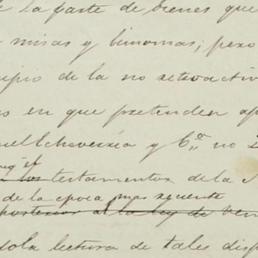 la parte de bienes que
misas y limosnas; pero
cipio de la no retroactiv
os en que pretenden ap
uel Echeverría y C.ª no
los testamentos de la
de la época mas reciente
posterior al la ley de
sola lectura de tales disp